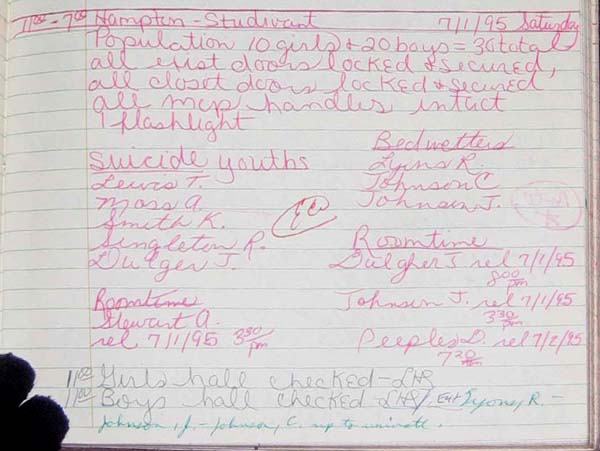 11:00 - 7:00 Hampton - Studivant 7/1/95 Saturday
Population 10 girls + 20 boys = 30 total
all exist doors locked & secured,
all closet doors locked & secured
all mop handles intact
1 flashlight
Bedwetters
Suicide youths
Lyons R.
Lewis T.
Johnson C
Moss A.
Johnson J.
Smith K.
Singleton R.
Roomtime
Dulger J.
Dulgher J rel 7/1/95
8:00 pm
Roomtime
Johnson J. rel 7/1/95
Stewart A.
3:30 pm
rel 7/1/95 3:30 pm
Peeples D. rel 7/2/95
7:30
11:00 Girls hall checked - LHS
11:00 Boys hall checked - LHS/ Lyons, R. -
Johnson, J. - Johnson, C. up to urinate.